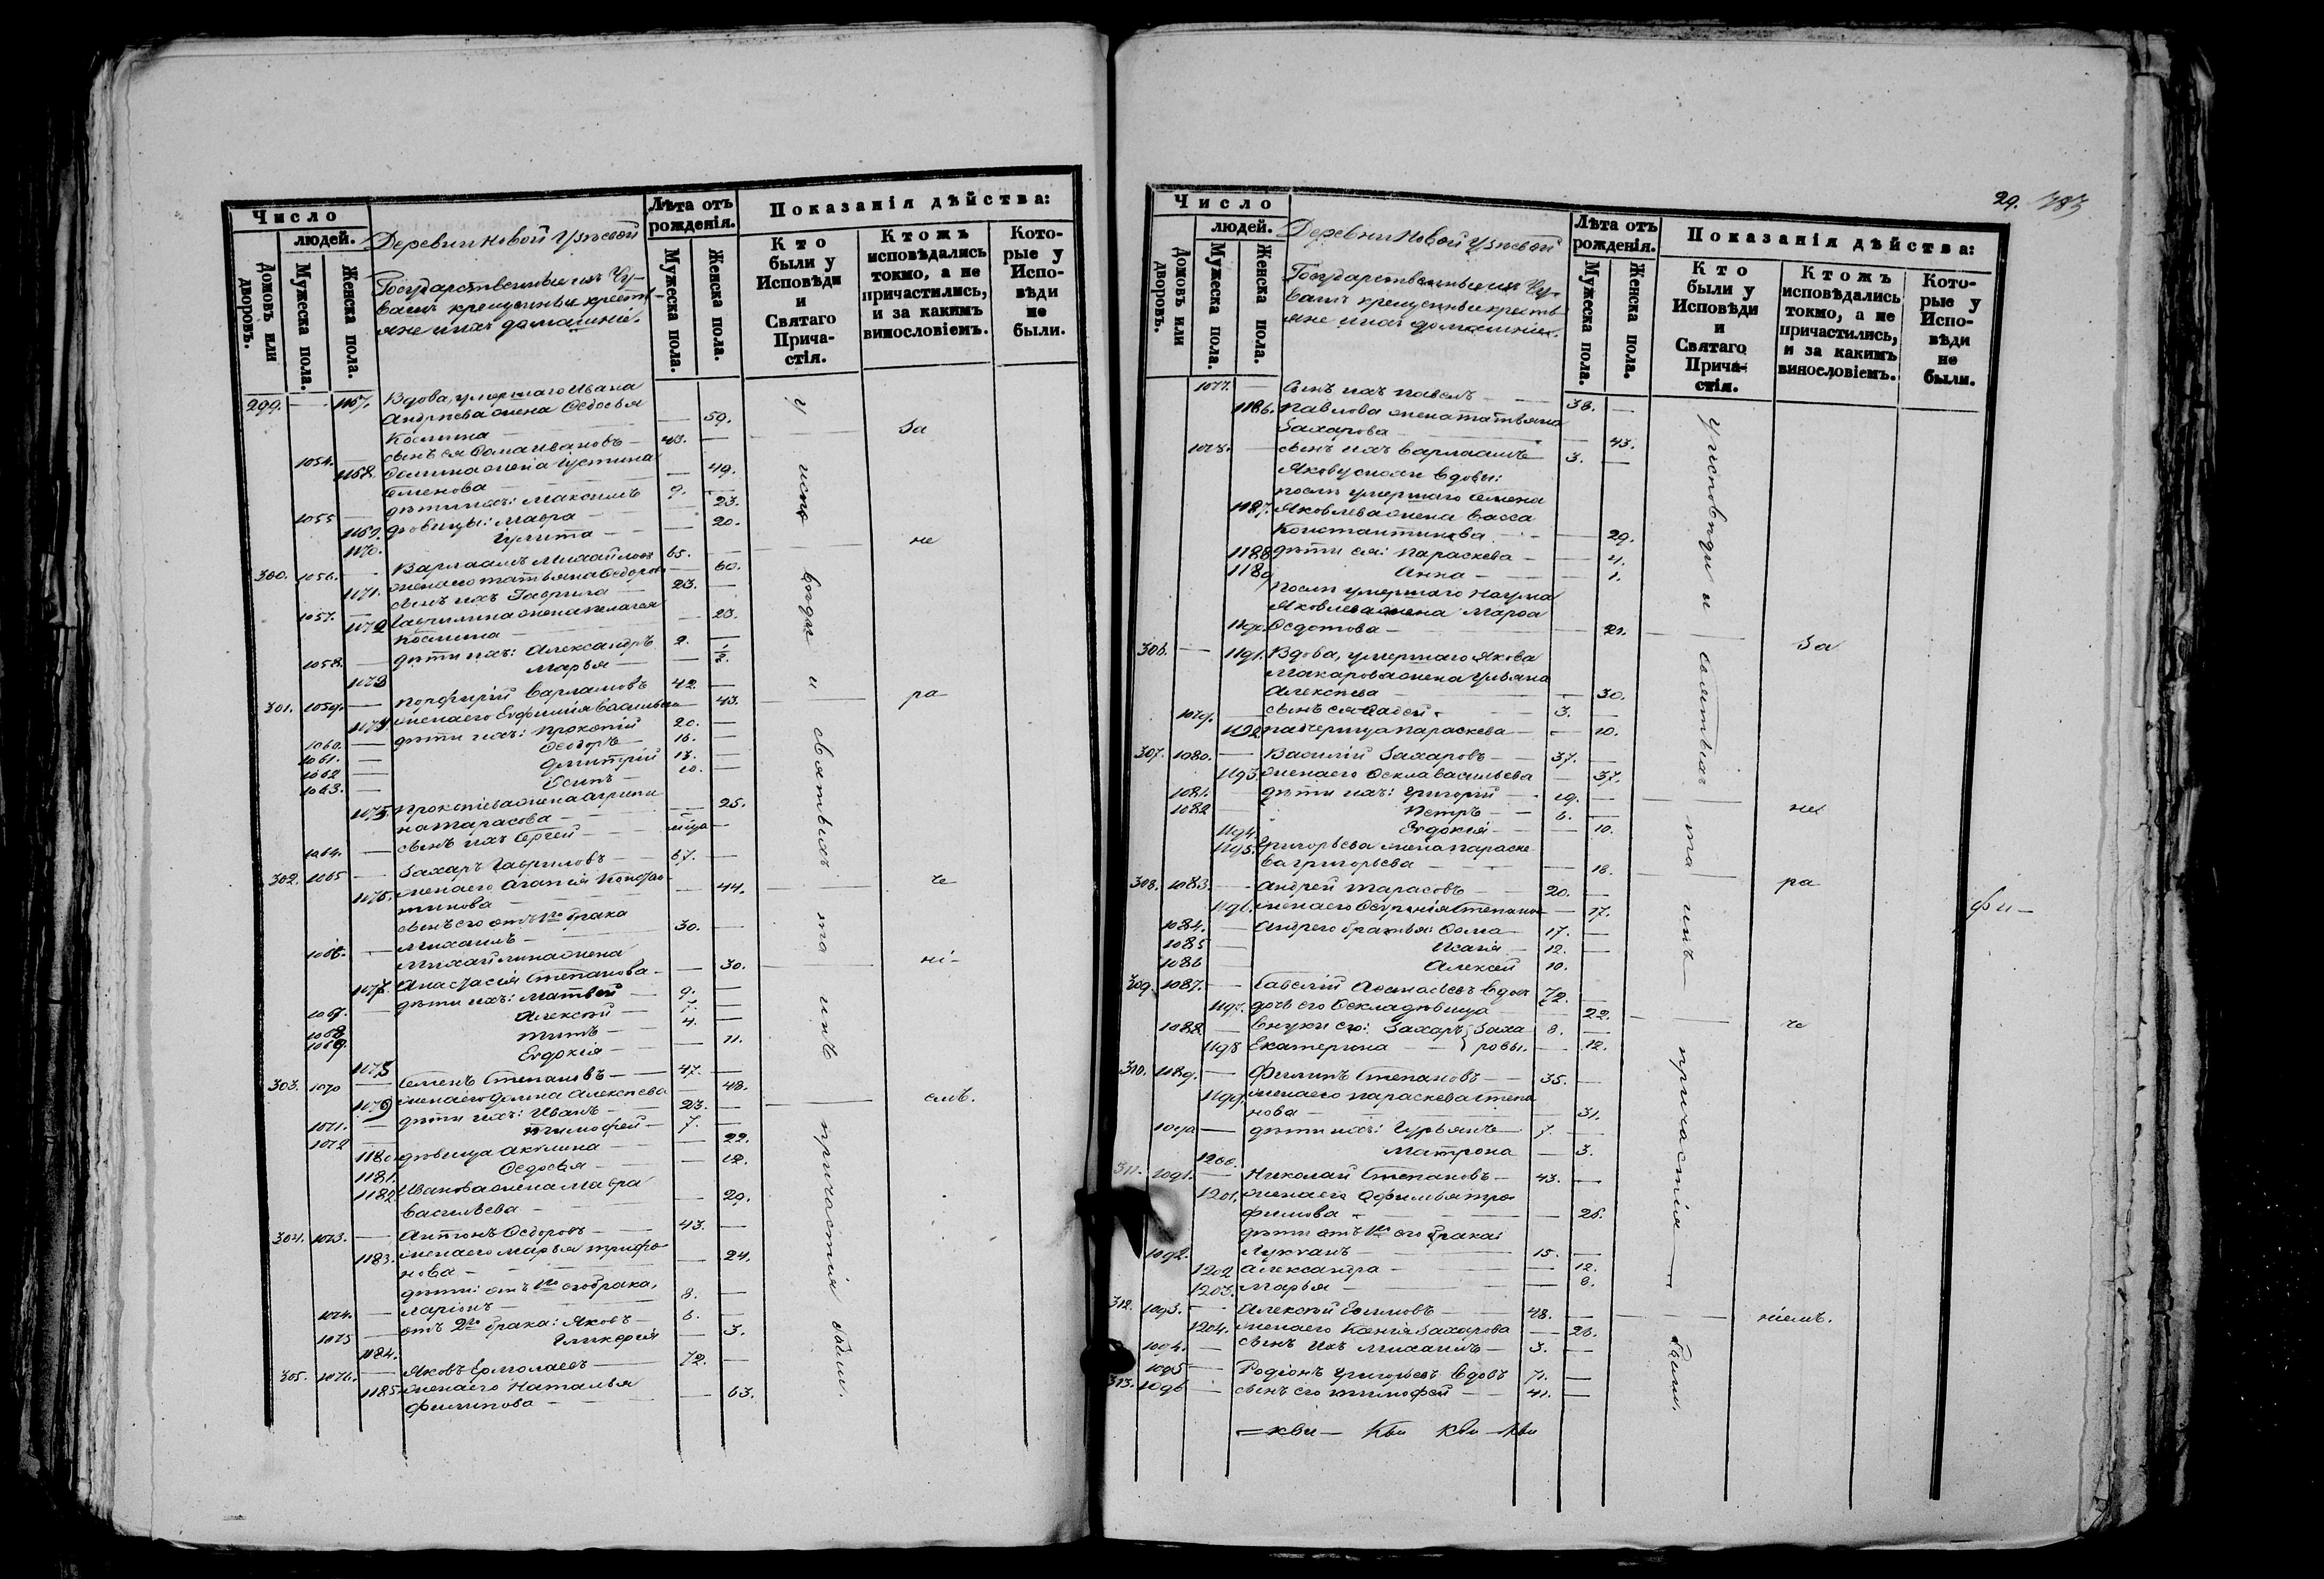 Число
людей.
Домовъ или дворовъ.
Мужеска пола.
Женска пола.
Деревни Новой Узѣевой
Государственные изъ Чу-
вашъ крещенные кресть-
яне и ихъ домашніе.
Лѣта отъ рожденія.
Мужеска пола.
Женска пола.
Показанія дѣйства:
Кто были у Исповѣди и Святаго Прича-стія.
Ктожъ исповѣдались токмо, а не причастились, и за какимъ винословіемъ.
Кото-рые у Испо-вѣди не были.
299. — 1167. Вдова, умершаго Ивана
Андреева жена Ѳедосья
Козмина — 59.
1054. сынъ ея Ѳома Ивановъ — 43. —
1168. Ѳомина жена Іустина
Семенова — 49.
1055 — дѣти ихъ: Максимъ 9. —
1169. дѣвицы: Мавра — 23.
1170. Іулита — 20.
300. 1056. — Варлаамъ Михайловъ 65. —
1171. жена его Татьяна Ѳедоров — 60.
1057. — сынъ ихъ Гаврила — 23. —
1172 Гаврилина жена Пелагея
Козмина — 23.
1058. — дѣти ихъ: Александръ 2. —
1173 Марья — 1/2.
301. 1059. — Порфирій Варламовъ 42. —
1174 жена его Евфимія Васильева — 43.
1060. — дѣти ихъ: Прокопій 20. —
1061. — Ѳедоръ — 16. —
1062 — Дмитрій 13. —
1063. — Осипъ — 10. —
1175. Прокопіева жена Агрипи
на Тарасова — 25.
1064. — сынъ ихъ Сергей —
302. 1065 — Захаръ Гавриловъ — 67. —
1176. жена его Агапія Констан-
тинова — 44.
сынъ его отъ 1го брака
1066. — Михаилъ — 30. —
Михайлина жена
1177. Анастасія Степанова — 30.
1067. — дѣти ихъ: Матвей — 9. —
1068. Алексѣй — 7. —
1069. Титъ — 4. —
1178 Евдокія — 11.
303. 1070 — Семенъ Степановъ — 47. —
1179 жена его Домна Алексѣева — 48.
1071. — дѣти ихъ: Иванъ — 23. —
1072 — Тимофей — 7. —
1180. дѣвица Акулина — 22.
1181. Ѳедосья — 12.
1182. Иванова жена Мавра
Васильева — 29.
304. 1073. — Антонъ Ѳедоровъ — 43. —
1183. жена его Марья Трифо-
нова — 24.
дѣти: отъ 1го его брака,
1074. — Ларіонъ — 8. —
1075 — отъ 2го брака: Яковъ — 6. —
1184. Гликерія — 3.
305. 1076. — Яковъ Ермолаевъ — 72. —
1185 жена его Наталья
Филипова — 63.
у испо вѣди и святыхъ та инъ причастія были.
За
не
ра
че
ні-
емъ.
29.
Число
людей.
Домовъ или дворовъ.
Мужеска пола.
Женска пола.
Деревни Новой Узѣевой
Государственные изъ Чу-
вашъ крещенные кресть-
яне и ихъ домашніе.
Лѣта отъ рожденія.
Мужеска пола.
Женска пола.
Показанія дѣйства:
Кто были у Исповѣди и Святаго Прича-стія.
Ктожъ исповѣдались токмо, а не причастились, и за какимъ винословіемъ.
Кото-рые у Испо-вѣди не были.
1077. — Сынъ ихъ Павелъ — 38. —
1186. Павлова жена Татьяна
Захарова — 43.
1078. — сынъ ихъ Варлаамъ — 3. —
Якову снохи вдовы:
послѣ умершаго Семена
1187. Яковлева жена Васса
Константинова — 29.
1188 дѣти ея: Параскева — 4.
1189 Анна — 1.
Послѣ умершаго Наума
Яковлева жена Марѳа
1190. Ѳедотова — 21.
306. — 1191. Вдова, умершаго Якова
Макарова жена Ульяна
Алексѣева — 30.
1079. — сынъ ея Фадей — 3. —
1192 падчерица Параскева — 10.
307. 1080. — Василій Захаровъ — 37. —
1193. жена его Ѳекла Васильева — 37.
1081. — дѣти ихъ: Григорій — 19. —
1082 — Петръ — 6. —
1194. Евдокія — 10.
1195. Григорьева жена Параске
ва Григорьева — 18.
308. 1083. — Андрей Тарасовъ — 20. —
1196. жена его Степано — 17.
1084. — Андрею братья: Ѳома 17. —
1085 — Исаія 12. —
1086 Алексѣй 10.
309. 1087. — Савелій Аѳонасьевъ вдов 72. —
1197. дочь его Ѳекла дѣвица — 22.
1088. — внуки его: Захаръ } Заха 8. —
1198 Екатерина — } ровы. — 12.
310. 1089. — Филипъ Степановъ — 35. —
1199. жена его Параскева Степа
нова — 31.
1090 — дѣти ихъ: Гурьянъ — 7. —
1200. Матрона — 3.
311. 1091. — Николай Степановъ — 43. —
1201. жена его Офимья Тро-
фимова — 26.
дѣти отъ 1го его брака:
1092. Лукіанъ — 15. —
1202 Александра — 12.
1203. Марья — 8.
312. 1093. — Алексѣй Ефимовъ — 48. —
1204. жена его Ксенія Захарова — 28.
1094. — сынъ ихъ Михаилъ — 3. —
1095 — Родіонъ Григорьевъ вдовъ 71. —
313. 1096 — сынъ его Тимофей — 41. —
у исповѣди и святыхъ та инъ причастія — были.
За
не
ра
че
ніемъ.
фи-